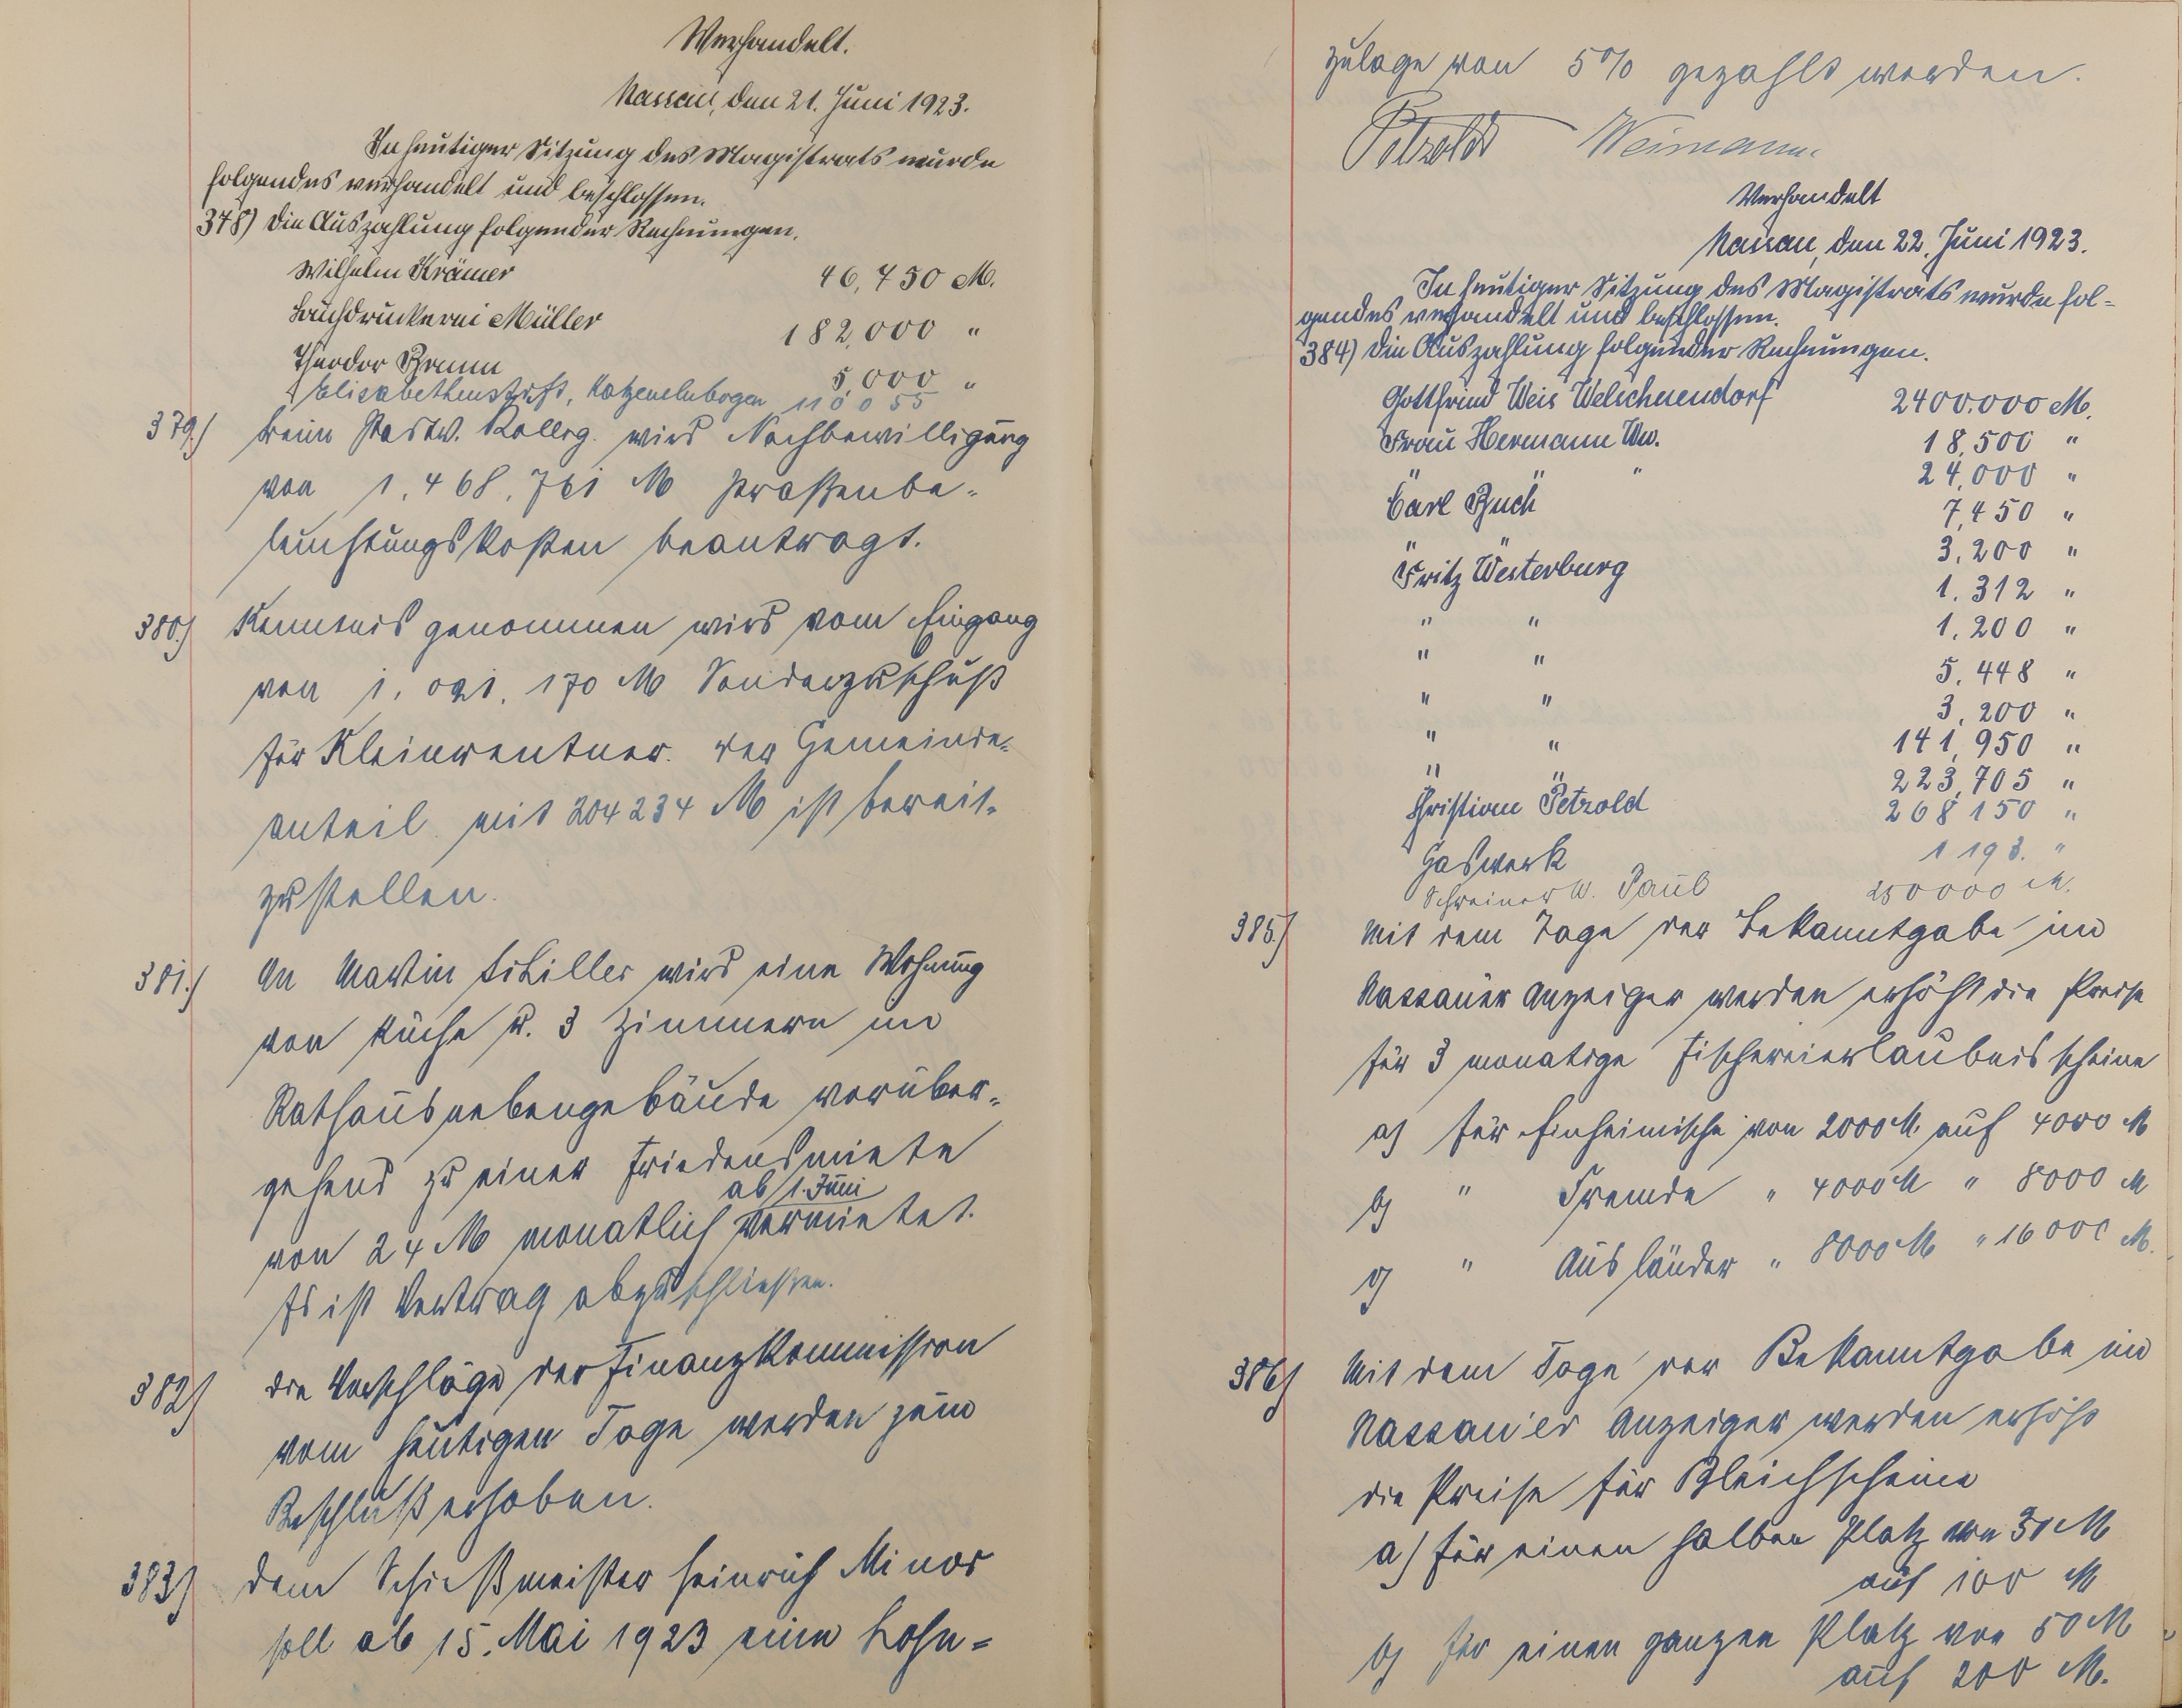 Verhandelt.
Nassau, den 21. Juni 1923.
In heutiger Sitzung des Magistrats wurde
folgendes verhandelt und beschlossen.
378) Die Auszahlung folgender Rechnungen.
Wilhelm Krämer 46,750 M.
Buchdruckerei Müller 182,000 "
Theodor Bruun 5,000 "
Elisabethenstift, Katzenelnbogen 110 055
379.) Beim Stadtv. Kolleg. wird Nachbewilligung
von 1.468.761 M Straßenbe-
leuchtungskosten beantragt.
380.) Kenntnis genommen wird vom Eingang
von 1.021.170 M Sonderzuschuß
für Kleinrentner. Der Gemeinde-
anteil mit 204 234 M ist bereit-
zustellen.
381.) An Martin Schiller wird eine Wohnung
von Küche u. 3 Zimmern im
Rathausnebengebäude vorüber-
gehend zu einer Friedensmiete
von 24 M monatlich ab 1. Juni vermietet.
Es ist Vertrag abzuschließen.
382) Die Vorschläge der Finanzkommission
vom heutigen Tage werden zum
Beschluß erhoben.
383) Dem Schießmeister Heinrich Minor
soll ab 15. Mai 1923 eine Lohn-
zulage von 5% gezahlt werden.
Petzold Weimann.
Verhandelt
Nassau, den 22. Juni 1923.
In heutiger Sitzung des Magistrats wurde fol-
gendes verhandelt und beschlossen.
384) Die Auszahlung folgender Rechnungen.
Gottfried Weis Welschneudorf 2400.000 M.
Frau Hermann Ww. 18,500 "
" " " 24,000 "
Carl Buch 7,450 "
" " 3,200 "
Fritz Westerburg 1.312 "
" " 1.200 "
" " 5.448 "
" " 3,200 "
" " 141,950 "
" " 223,705 "
Christian Petzold 268 150 "
Gaswerk 1 193. "
Schreiner W. Paul 250000 M.
385.) Mit dem Tage der Bekanntgabe im
Nassauer Anzeiger werden erhöht die Preise
für 3 monatige Fischereierlaubnisscheine
a) für Einheimische von 2000 M. auf 4000 M
b) " Fremde " 4000 M " 8000 M
c) " Ausländer " 8000 M " 16000 M.
386) Mit dem Tage der Bekanntgabe im
Nassauer Anzeiger werden erhöht
die Preise für Bleichscheine
a) für einen halben Platz von 30 M
auf 100 M
b) für einen ganzen Platz von 50 M
auf 200 M.